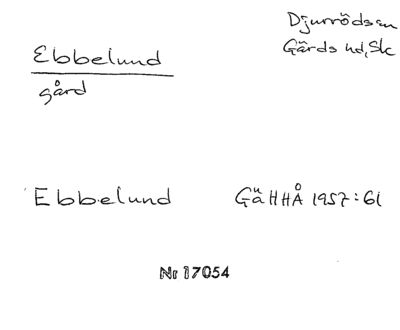 Djurröds sn
Ebbelund
Gärds hd, Sk
gård
Ebbelund GäHHÅ 1957:61
Nr 17054